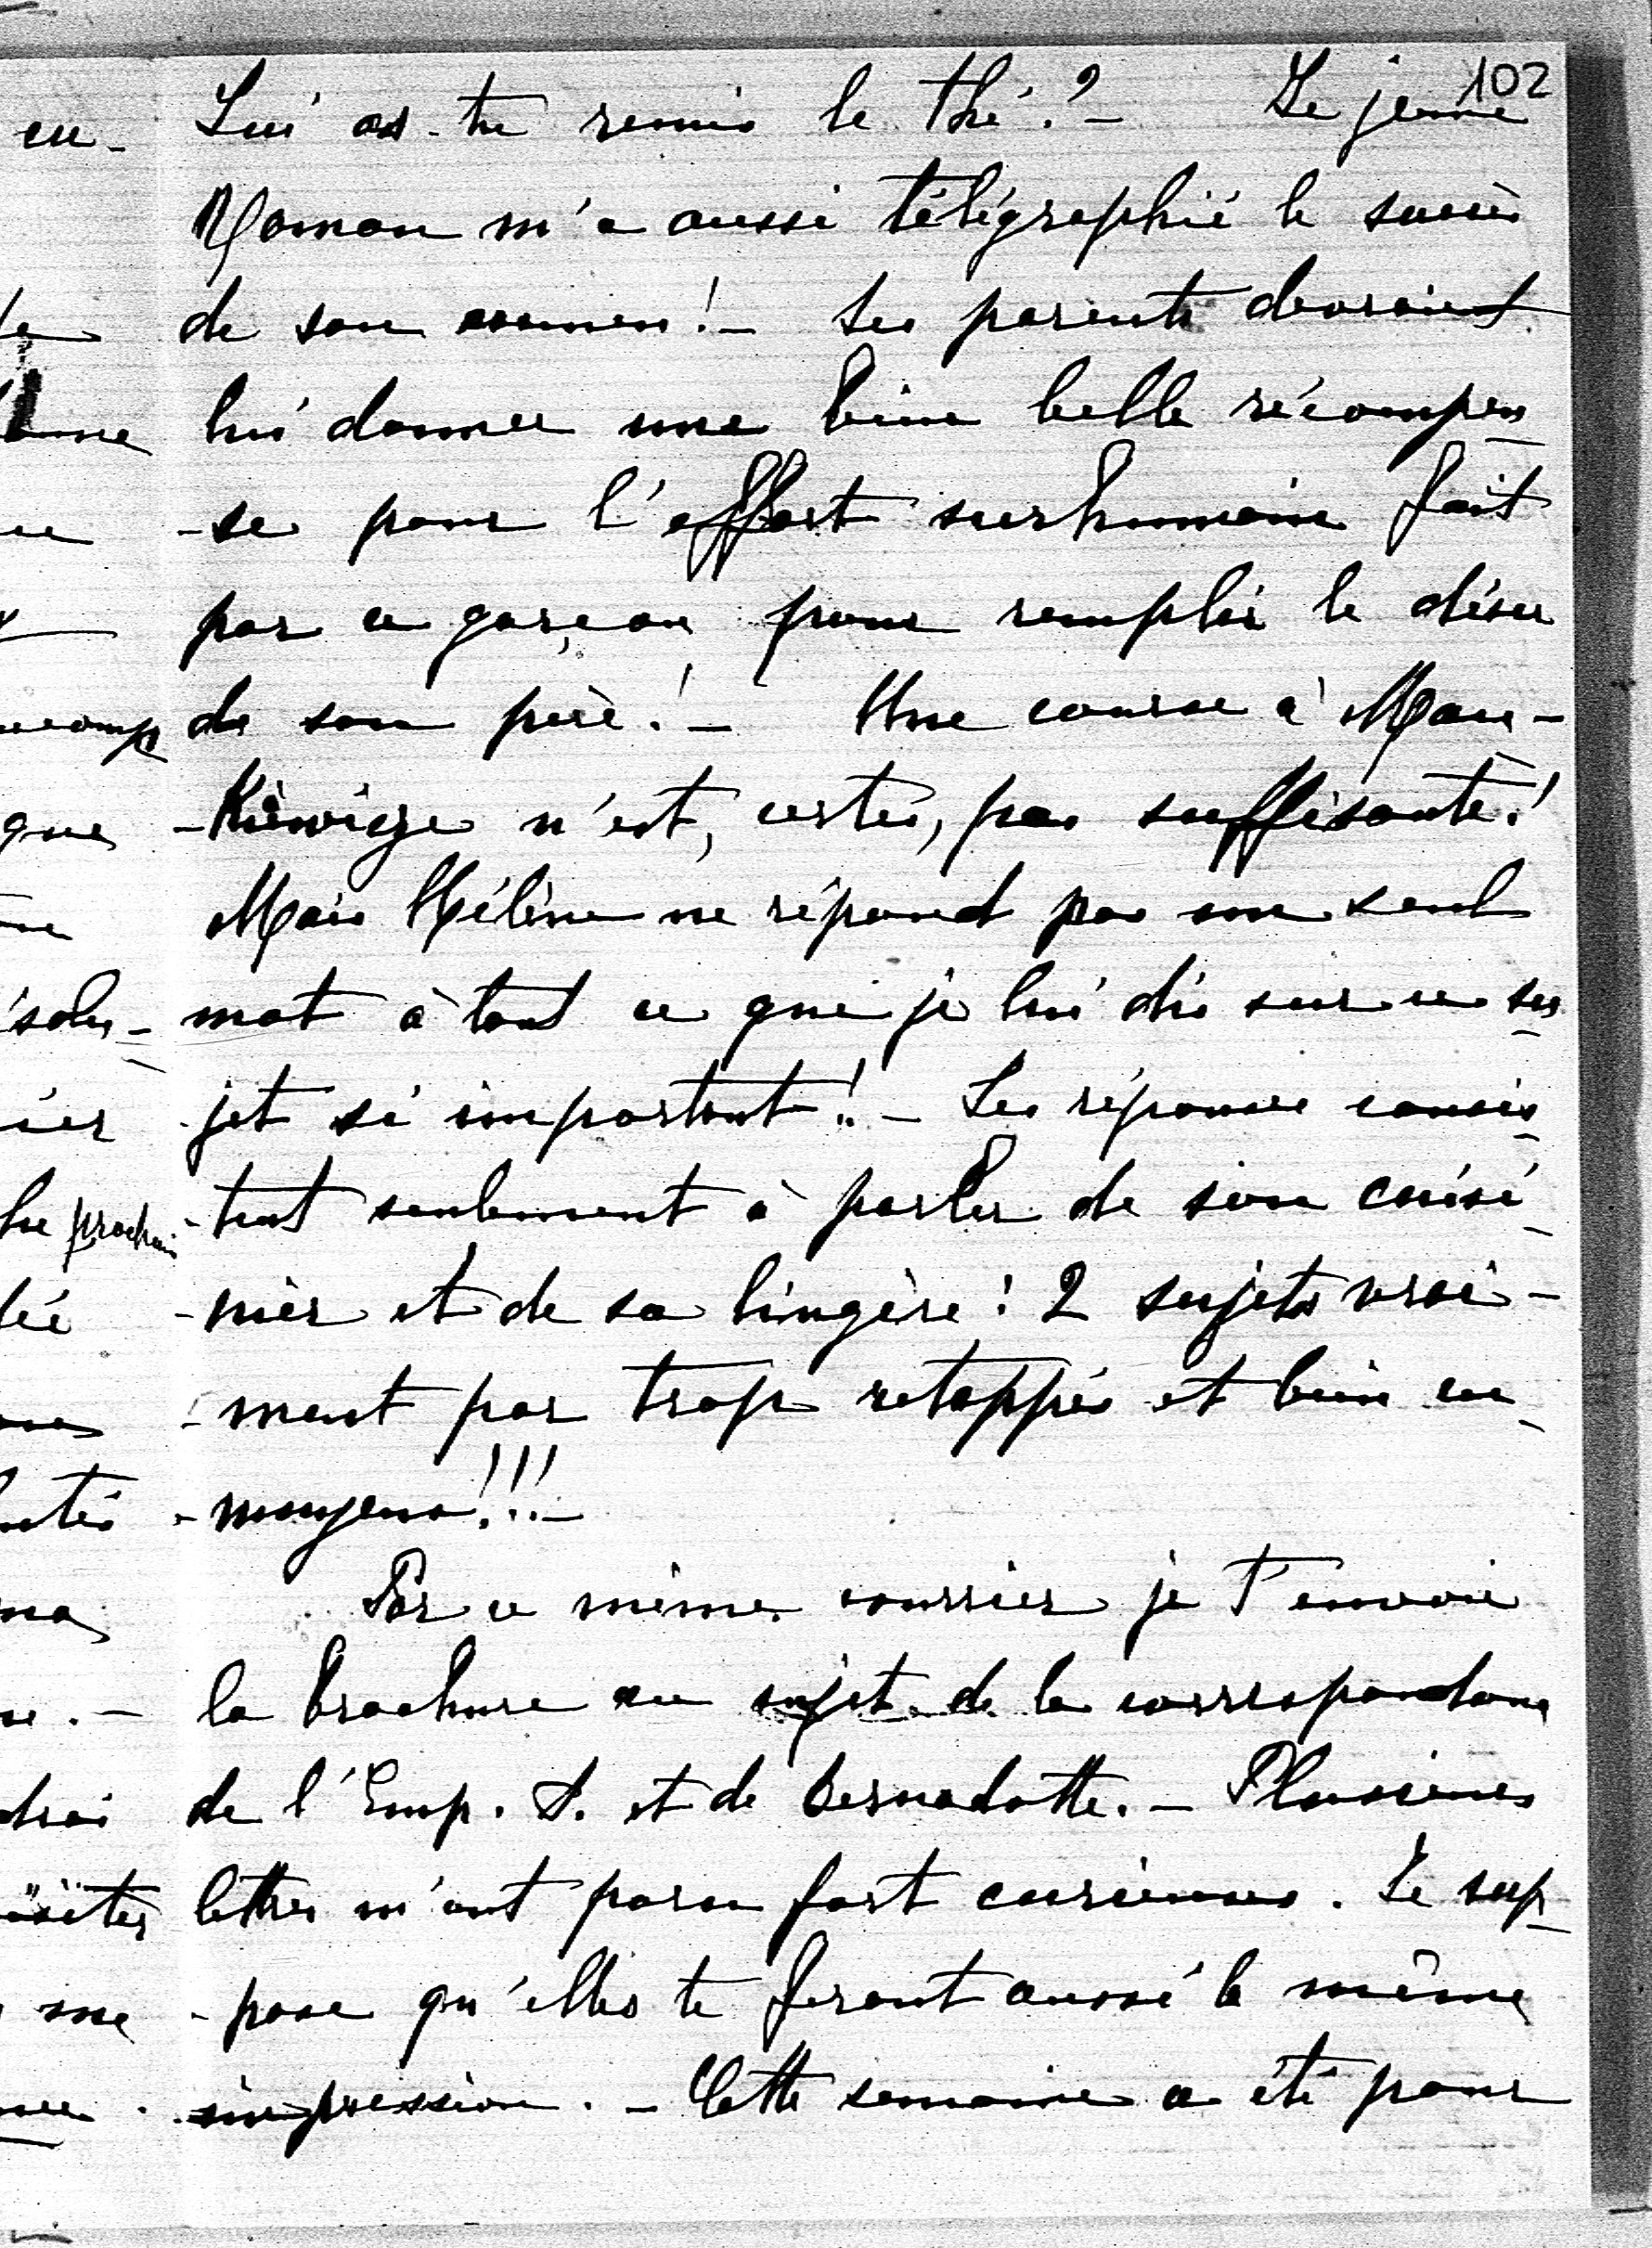 102
Lui as-tu remis le thé? - Le jeune
Roman m'a aussi télégraphié le succès
de son examen! - Ses parents devraient
lui donner une bien belle récompen
-se pour l'effort surhumain fait
par ce garçon pour remplir le désir
de son père! - Une course à Man-
n'est, certes, pas suffisante!
Mais Hélène ne répond pas un seul
mot à tout ce que je lui dis sur ce su
jet si important! - Les réponses consis
-tent seulement à parler de son cuisi
-nier et de sa lingère: 2 sujets vrai-
-ment par trop retappés et bien en
-nuyeux!!! -
Par ce même courrier je t'envoie
la brochure au sujet de la correspondance
de l'Emp. A. et de Bernadotte. - Plusieurs
lettres m'ont paru fort curieuses. Je sup
-pose qu'elles te feront aussi la même
impression. - Cette semaine a été pour